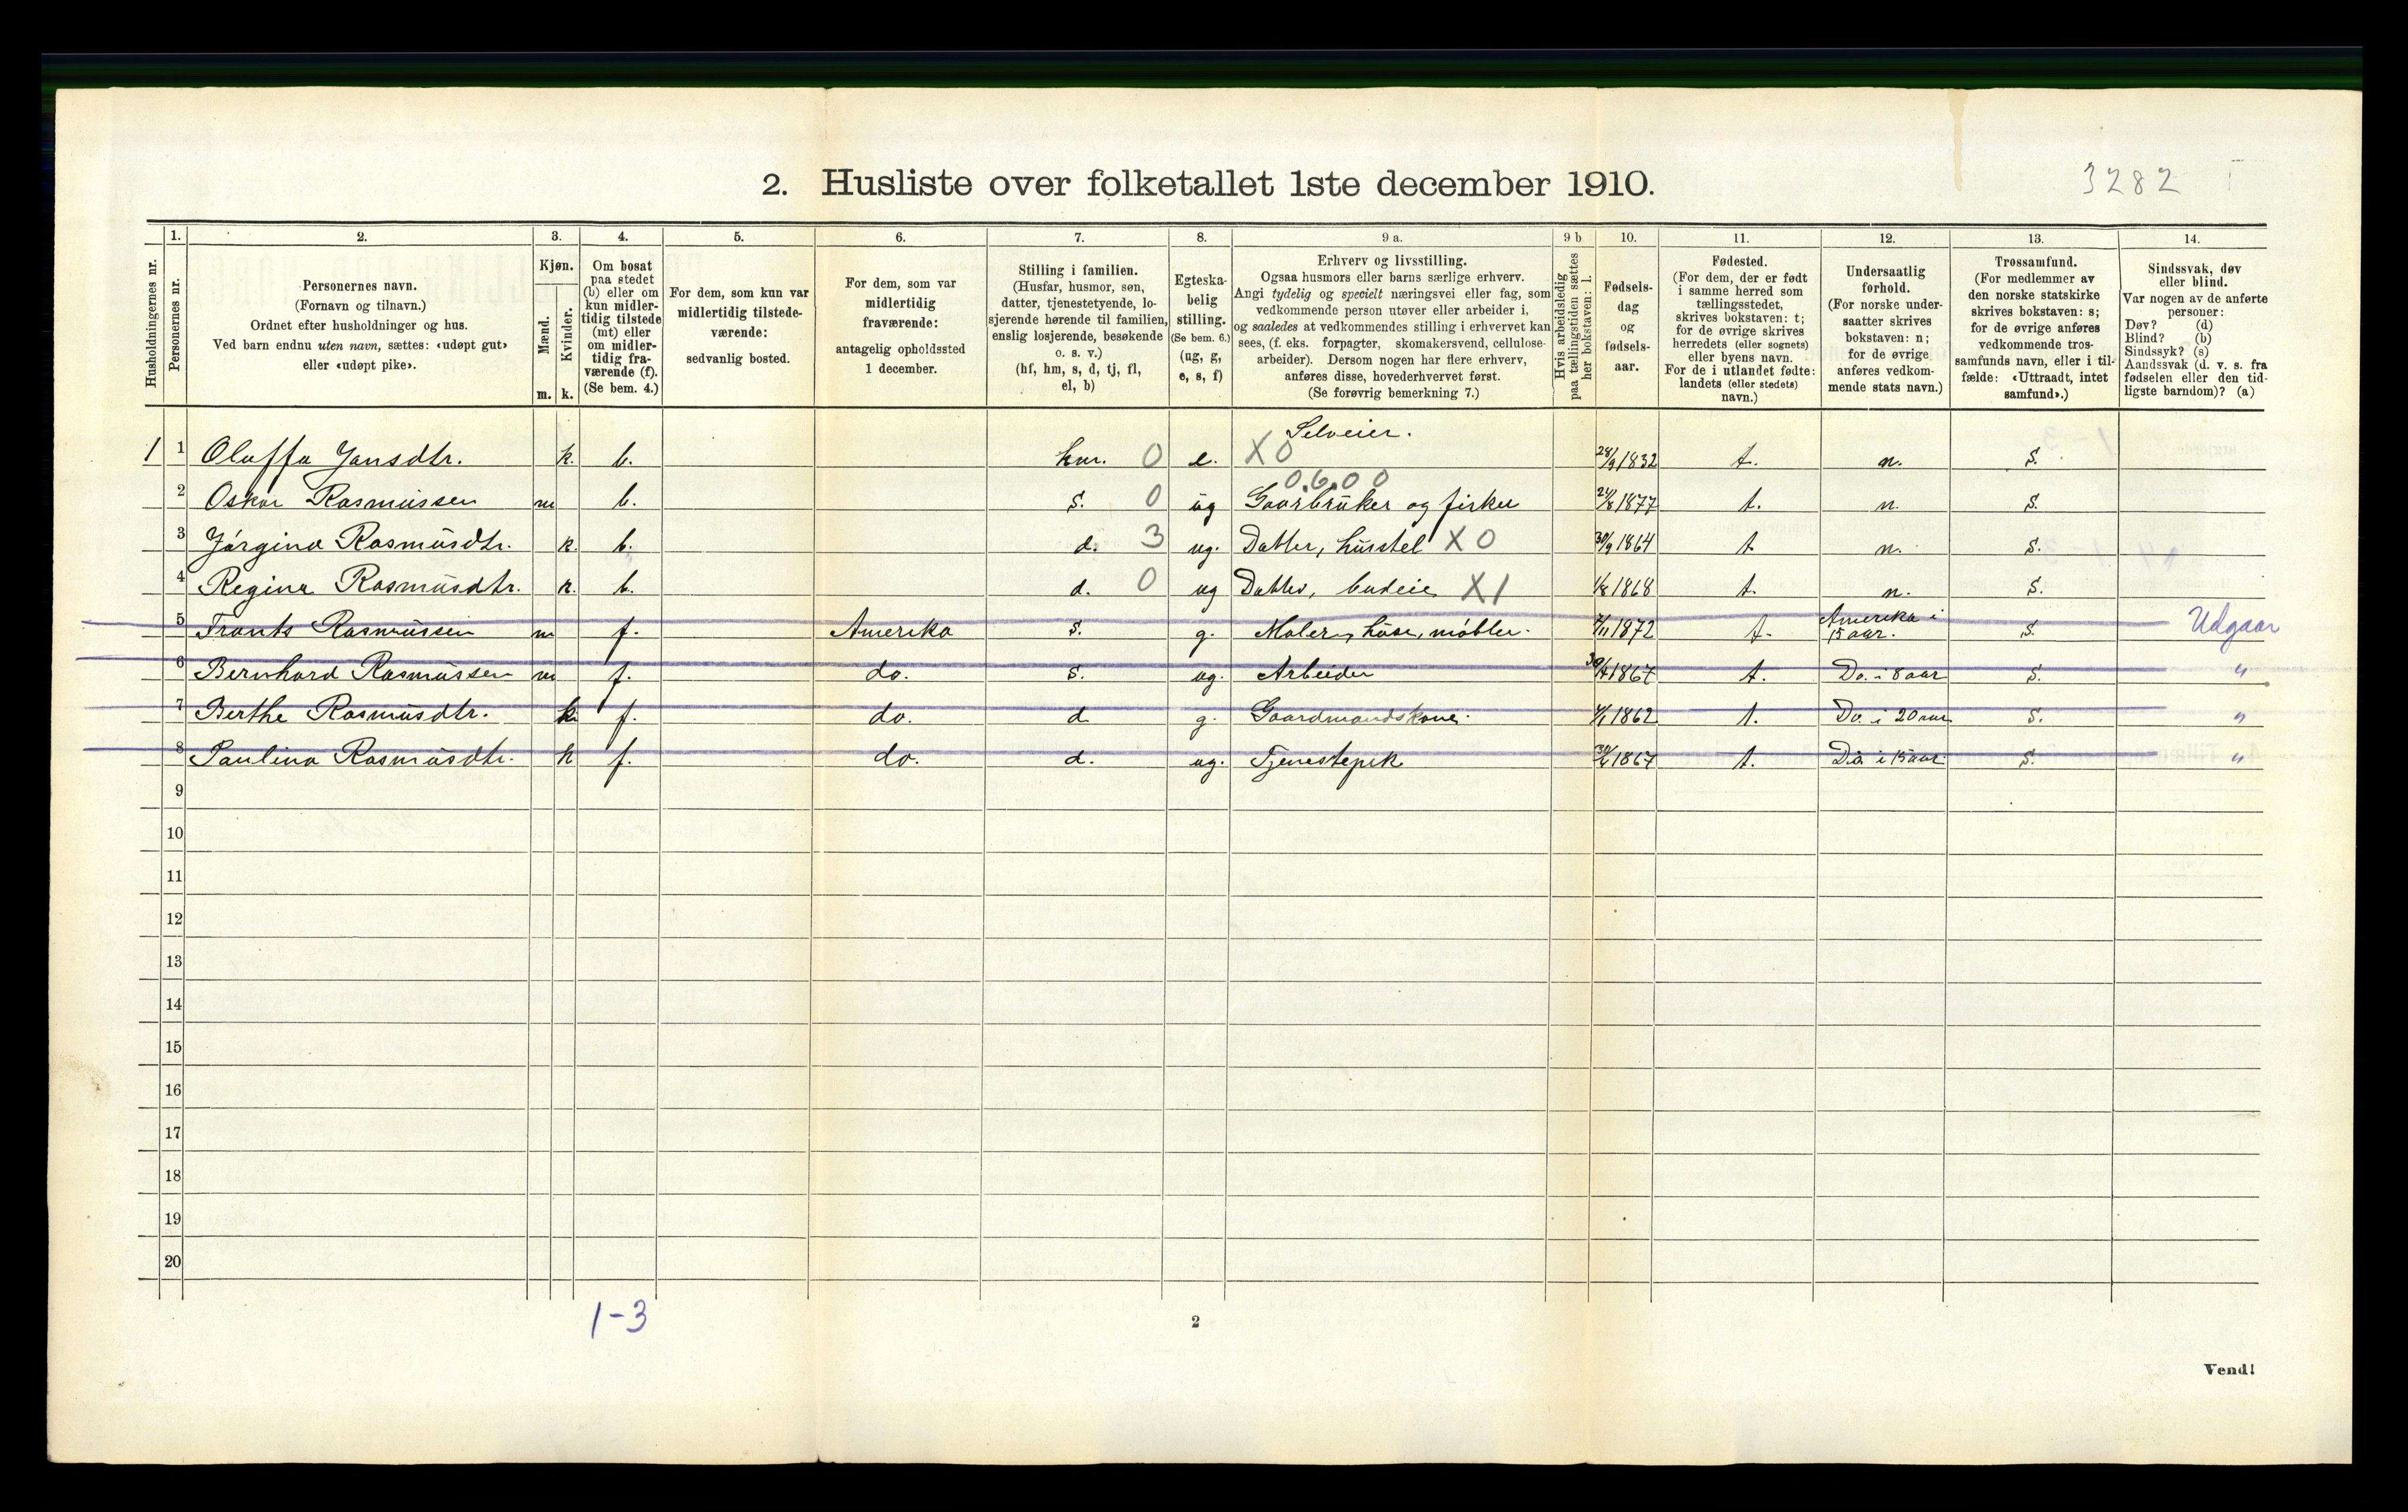 2. Husliste over folketallet 1ste december 1910.
3282
Husholdningernes nr.
1. Personernes nr.
2. Personernes navn.
(Fornavn og tilnavn.)
Ordnet efter husholdninger og hus.
Ved barn endnu uten navn, sættes: «udøpt gut»
eller «udøpt pike».
3. Kjøn.
Mænd. m.
Kvinder. k.
4. Om bosat
paa stedet
(b) eller om
kun midler-
tidig tilstede
(mt) eller
om midler-
tidig fra-
værende (f).
(Se bem. 4.)
5. For dem, som kun var
midlertidig tilstede-
værende:
sedvanlig bosted.
6. For dem, som var
midlertidig
fraværende:
antagelig opholdssted
1 december.
7. Stilling i familien.
(Husfar, husmor, søn,
datter, tjenestetyende, lo-
sjerende hørende til familien,
enslig losjerende, besøkende
o. s. v.)
(hf, hm, s, d, tj, fl,
el, b)
8. Egteska-
belig
stilling.
(Se bem. 6.)
(ug, g,
e, s, f)
9 a. Erhverv og livsstilling.
Ogsaa husmors eller barns særlige erhverv.
Angi tydelig og specielt næringsvei eller fag, som
vedkommende person utøver eller arbeider i,
og saaledes at vedkommendes stilling i erhvervet kan
sees, (f. eks. forpagter, skomakersvend, cellulose-
arbeider). Dersom nogen har flere erhverv,
anføres disse, hovederhvervet først.
(Se forøvrig bemerkning 7.)
9 b Hvis arbeidsledig
paa tællingstiden sættes
her bokstaven: l.
10. Fødsels-
dag
og
fødsels-
aar.
11. Fødested.
(For dem, der er født
i samme herred som
tællingsstedet,
skrives bokstaven: t;
for de øvrige skrives
herredets (eller sognets)
eller byens navn.
For de i utlandet fødte:
landets (eller stedets)
navn.)
12. Undersaatlig
forhold.
(For norske under-
saatter skrives
bokstaven: n;
for de øvrige
anføres vedkom-
mende stats navn.)
13. Trossamfund.
(For medlemmer av
den norske statskirke
skrives bokstaven: s;
for de øvrige anføres
vedkommende tros-
samfunds navn, eller i til-
fælde: «Uttraadt, intet
samfund».)
14. Sindssvak, døv
eller blind.
Var nogen av de anførte
personer:
Døv? (d)
Blind? (b)
Sindssyk? (s)
Aandssvak (d. v. s. fra
fødselen eller den tid-
ligste barndom)? (a)
Selveier.
1 1 Oluffa Jansdtr. k. b. hm. 0 e. X 0 28/9 1832 t. n. S.
0.6.0 0
2 Oskar Rasmussen m b. S. 0 ug Gaarbruker og fisker 1877 t. n. S.
3 Jørgina Rasmusdtr. k. b. d. 3 ug. Datter, husstel X 0 30/9 1864 t. n. S.
4 Regina Rasmusdtr. k. b. d. 0 ug Datter, budeie X 1 1/8 1868 t. n. S.
5 Frants Rasmussen m f. Amerika S. g. Maler, huse, møbler. 7/11 1872 t. Amerika i
15 aar. S. Udgaar
6 Bernhard Rasmussen m f. do. S. ug. Arbeider 1867 t. Do. i 8 aar S. "
7 Berthe Rasmusdtr. k. f. do. d g. Gaardmandskone. 1862 t. Do. i 20 aar S. "
8 Paulina Rasmusdtr. k f. do. d. ug. Tjenestepik 1867 t. Do i 15 aar. S. "
9
10
11
12
13
14
15
16
17
18
19
20
1-3
2
Vend!